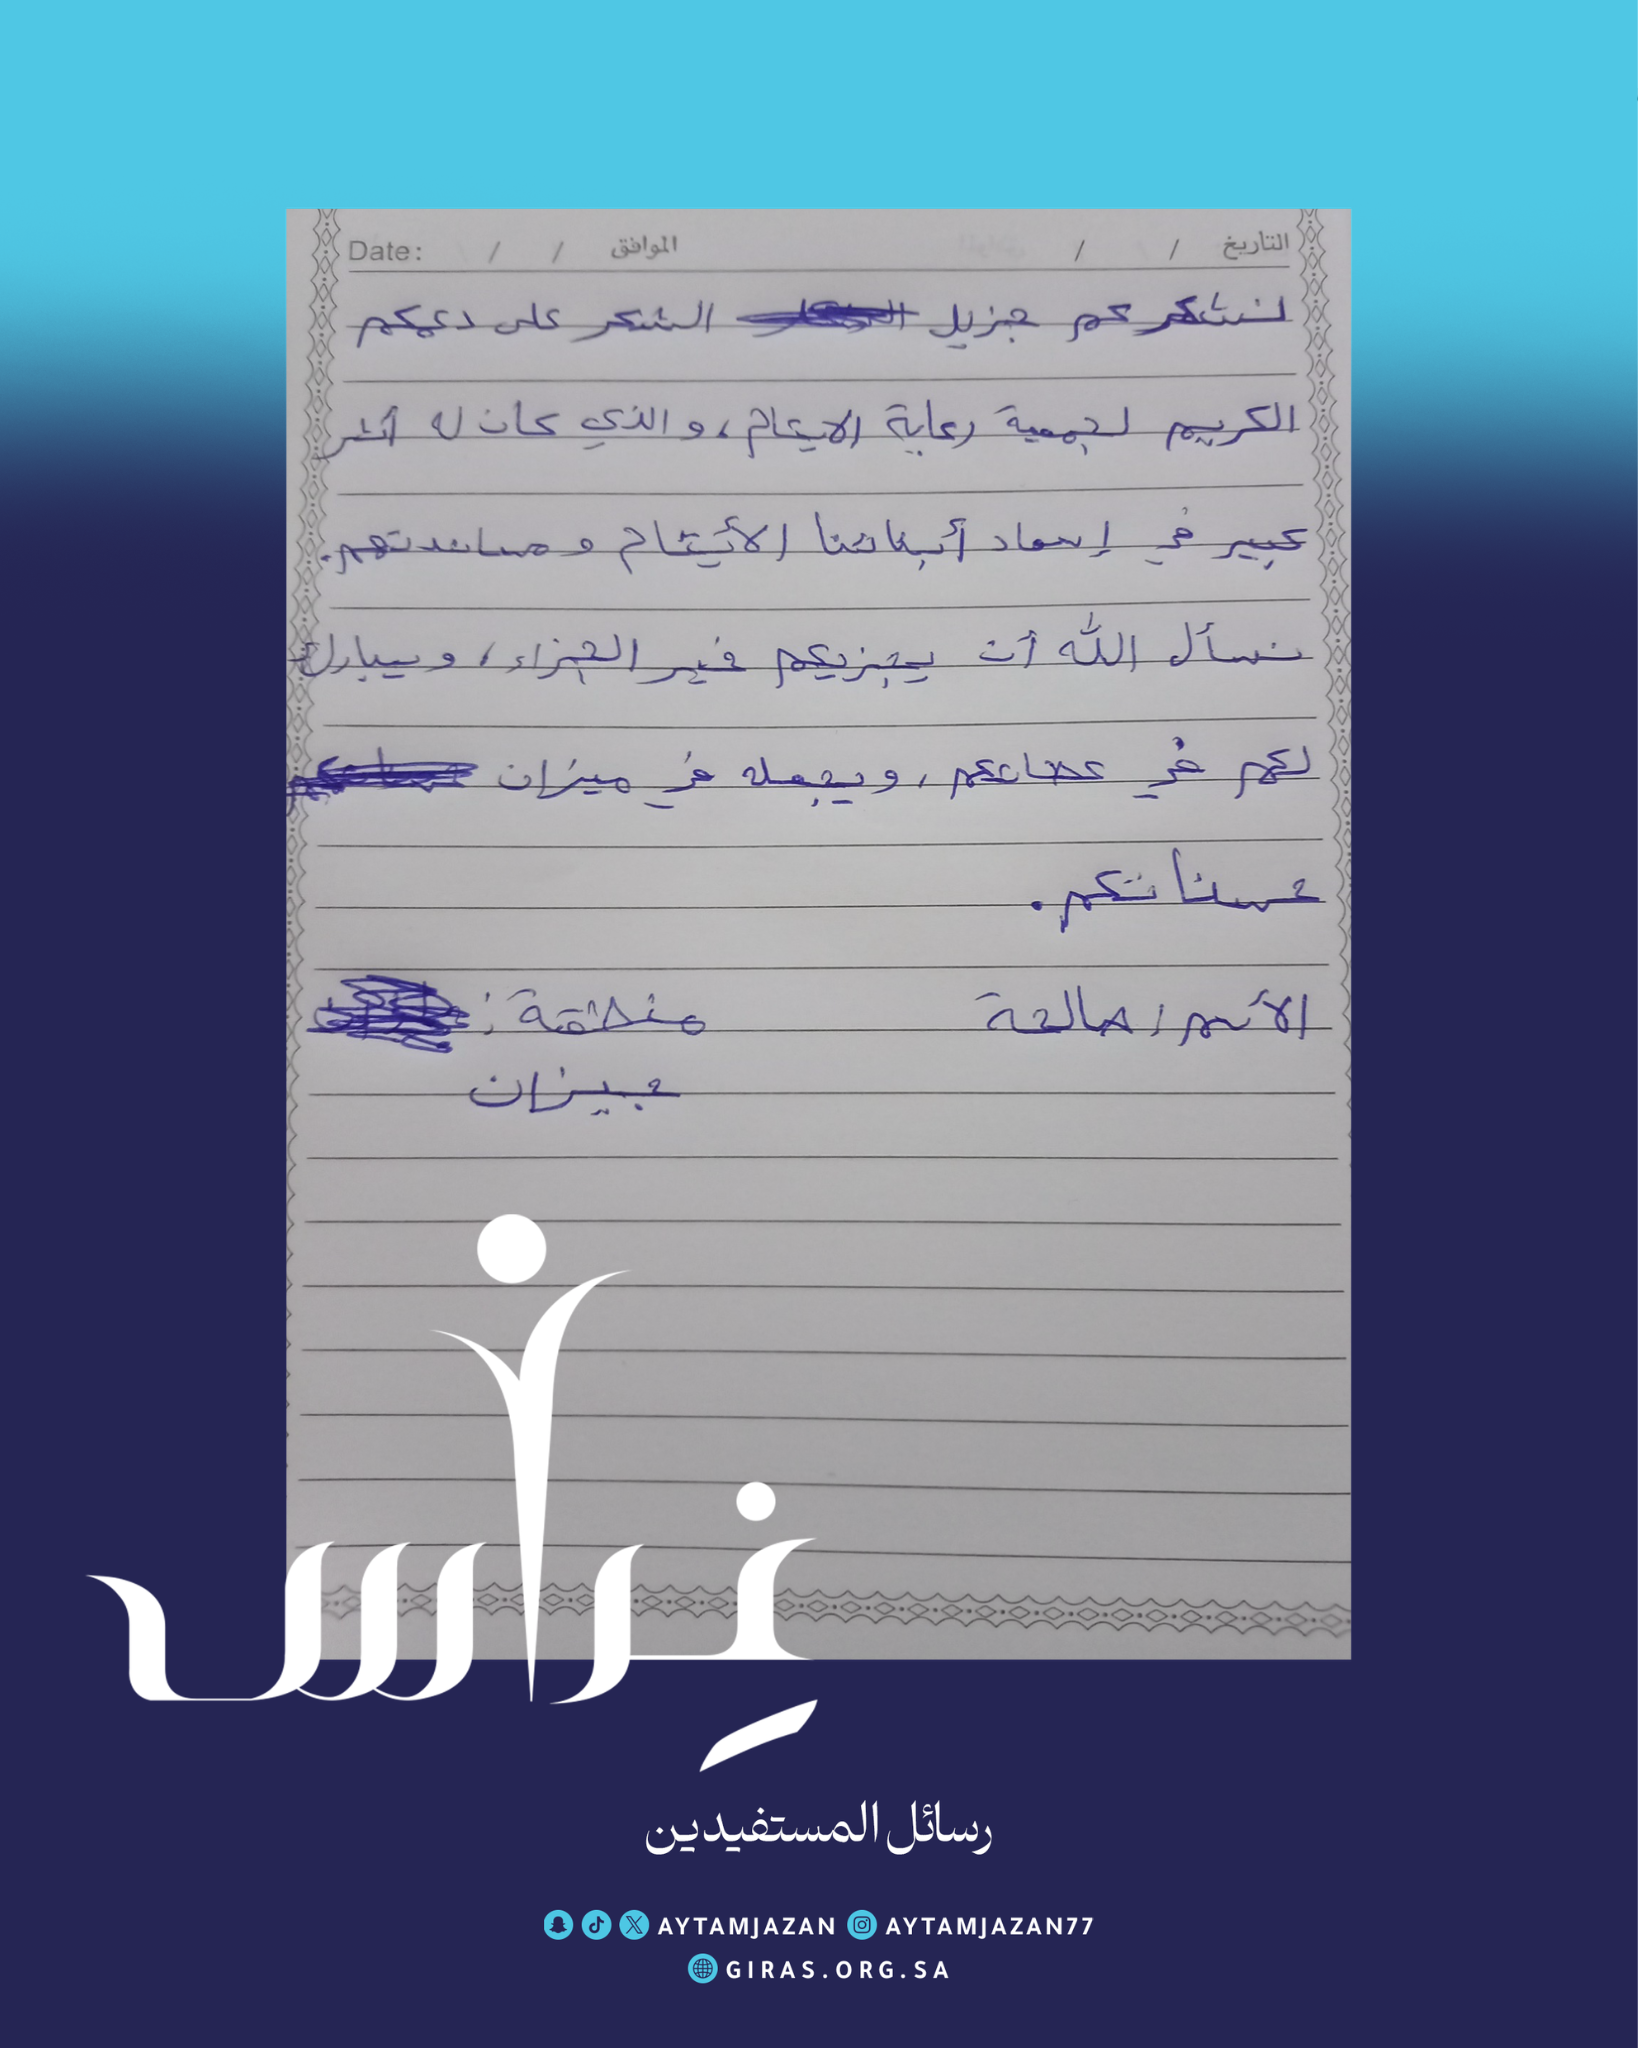 التاريخ / / الموافق / / Date:
لنشكركم جزيل الشكر على دعمكم
الكريم لجمعية رعاية الايتام، والذي كان له أثر
كبير في إسعاد أبنائنا الأيتام ومساندتهم.
نسأل الله أن يجزيكم خير الجزاء، ويبارك
لكم في عطائكم، ويجعله في ميزان
حسناتكم.
الأسم / صالحة منطقة:
جيزان
غِراس
رسائل المستفيدين
AYTAMJAZAN AYTAMJAZAN77
GIRAS.ORG.SA